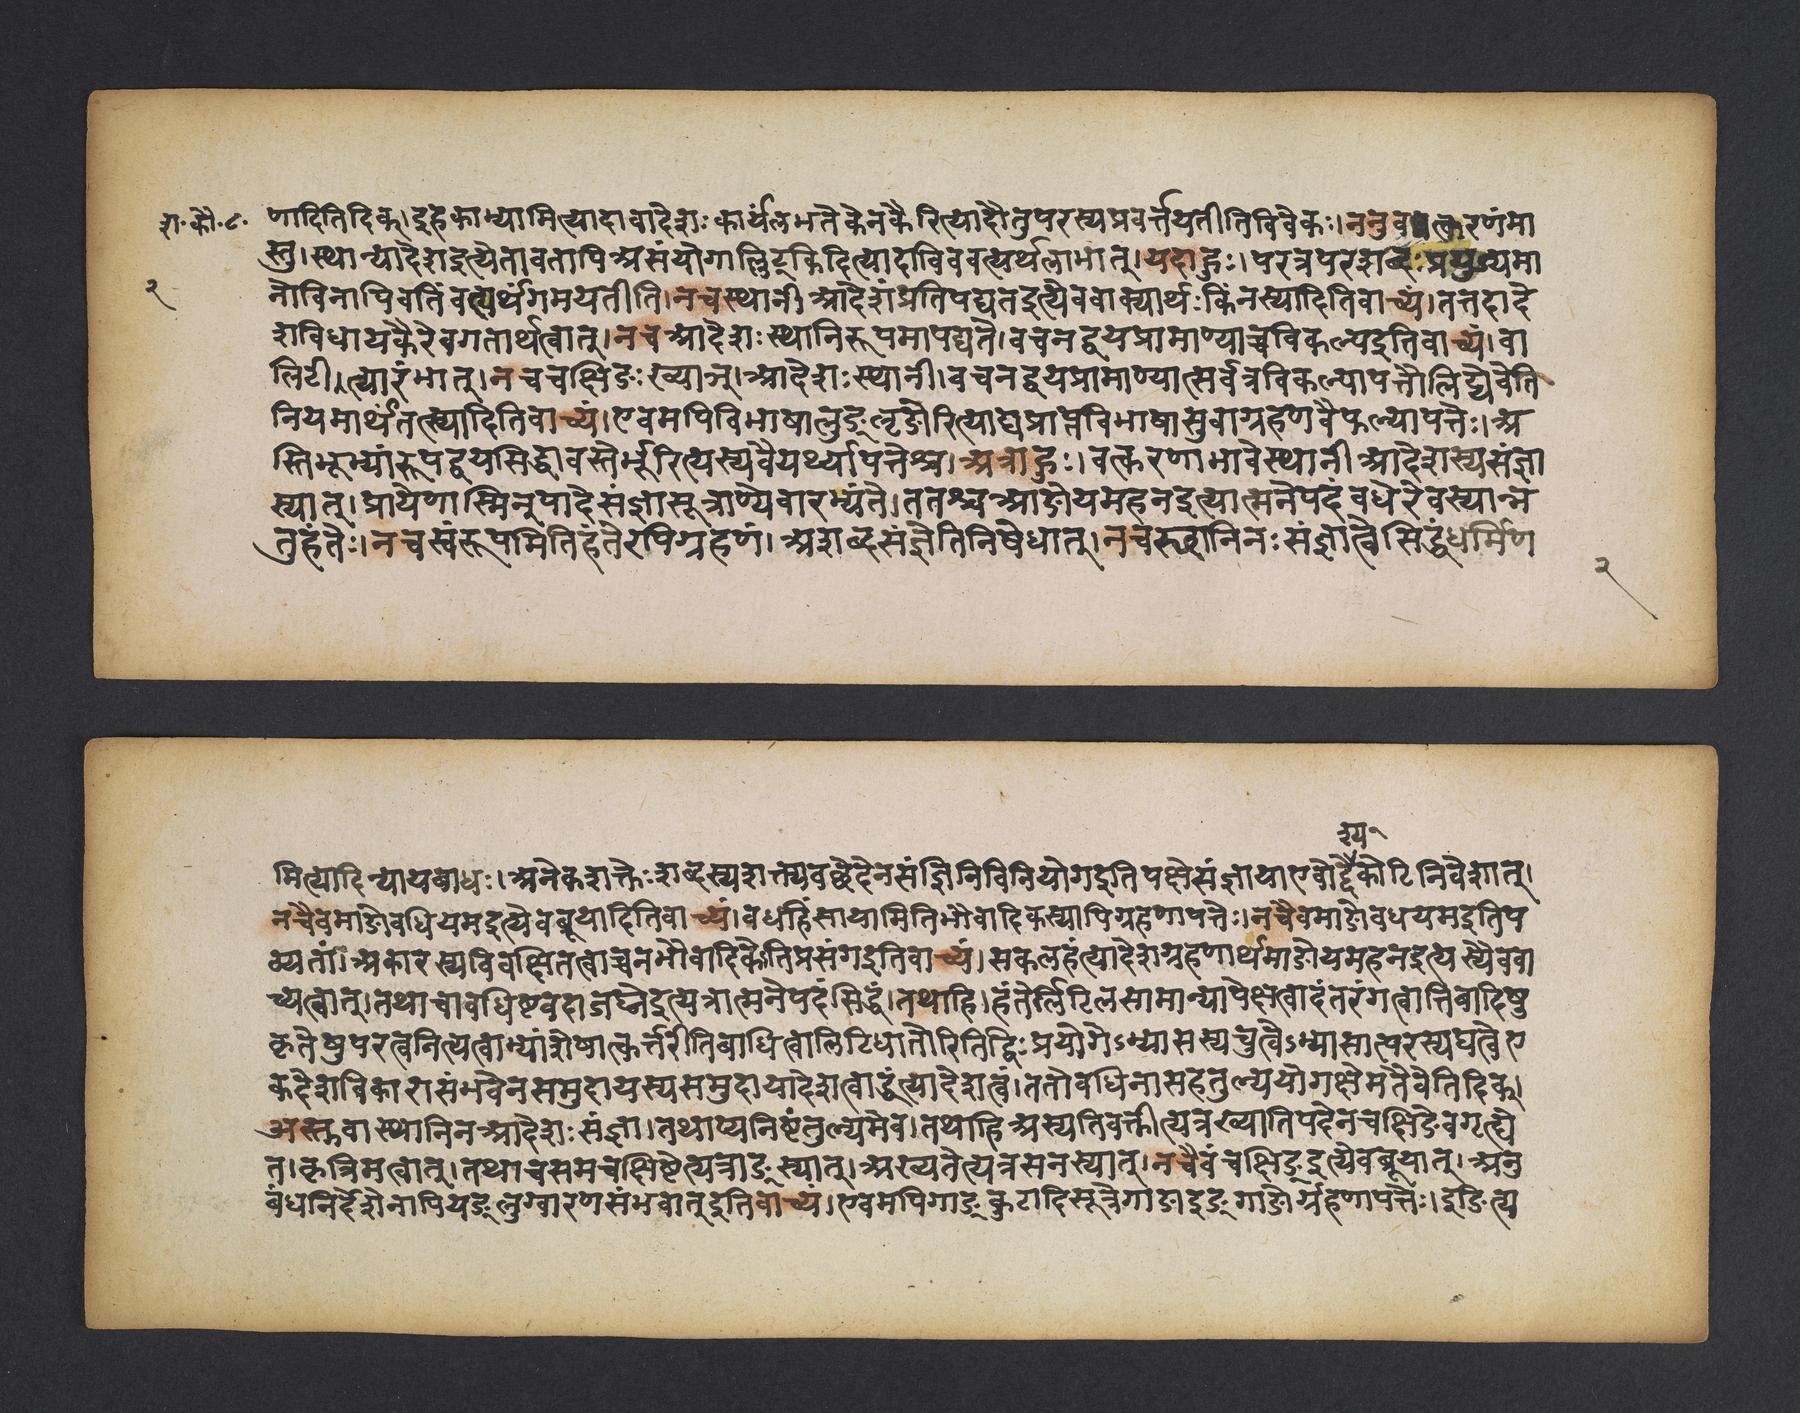 श॰ कौ॰ ८॰
णादितिदिक्।इहकाम्यामित्यादावादेशः कार्यंलभतेकेनकैरित्यादौतुपरस्यप्रवर्त्तयतीतिविवेकः।ननुवत्करणंमा
२
स्तु।स्थान्यादेशइत्येतावतापिअसंयोगाल्लिट्किदित्यादाविववत्यर्थलाभात्।यदाहुः।परत्रपरशब्दःप्रयुज्यमा
नोविनापिवतिंवत्यर्थंगमयतीति।नचस्थानी आदेशंप्रतिपद्यतइत्येववाक्यार्थःकिंनस्यादितिवाच्यं।तत्तदादे
शविधायकैरेवगतार्थत्वात्।नचआदेशःस्थानिरूपमापद्यते।वचनद्वयप्रामाण्याच्चविकल्पइतिवाच्यं।वा
लिटी।त्यारंभात्।नचचक्षिङःख्याञ्।आदेशःस्थानी।वचनद्वयप्रामाण्यात्सर्वत्रविकल्पापत्तौलिट्येवेति
नियमार्थंतत्स्यादितिवाच्यं।एवमपिविभाषालुङ्लृङोरित्याद्यप्राप्तविभाषासुवाग्रहणवैफल्यापत्तेः।अ
स्तिभूभ्यांरूपद्वयसिद्धावस्तेर्भूरित्यस्यवैयर्थ्यापत्तेश्च।अत्राहुः।वत्करणाभावेस्थानी आदेशस्यसंज्ञा
स्यात्।प्रायेणास्मिन्पादेसंज्ञासूत्राण्येवारभ्यंते।ततश्चआङोयमहनइत्यात्मनेपदंवधेरेवस्यान्न
तुहंतेः।नचस्वंरूपमितिहंतेरपिग्रहणं।अशब्दसंज्ञेतिनिषेधात्।नचस्थानिनःसंज्ञात्वेसिद्धंधर्मिण
२
इय॰
मित्यादिन्यायबाधः।अनेकशक्तेःशब्दस्यशक्त्यवच्छेदेनसंज्ञिनिविनियोगइतिपक्षेसंज्ञायाएवोद्देकोटिनिवेशात्।
नचैवमाङोवधियमइत्येवब्रूयादितिवाच्यं।वधहिंसायामितिभौवादिकस्यापिग्रहणापत्तेः।नचैवमाङोवधयमइतिप
ठ्यतां।अकारस्यविवक्षितत्वाच्चनभौवादिकेतिप्रसंगइतिवाच्यं।सकलहंत्यादेशग्रहणार्थमाङोयमहनइत्यस्यैववा
च्यत्वात्।तथाचावधिष्टवदाजघ्नेइत्यत्रात्मनेपदंसिद्धं।तथाहि।हंतेर्लिटिलसामान्यापेक्षत्वादंतरंगत्वात्तिबादिषु
कृतेषुपरत्वनित्यत्वाभ्यांशेषात्कर्त्तरीतिबाधित्वालिटिधातोरितिद्विःप्रयोगेऽभ्यासस्यचुत्वेऽभ्यासात्परस्यघत्वेए
कदेशविकारासंभवेनसमुदायस्यसमुदायादेशत्वाद्धंत्यादेशत्वं।ततोवधिनासहतुल्ययोगक्षेमतैवेतिदिक्।
अस्तुवास्थानिनआदेशःसंज्ञा।तथाप्यनिष्टंतुल्यमेव।तथाहिअस्यतिवक्तीत्यत्रख्यातिपदेनचक्षिङेवगृह्ये
त।कृत्रिमत्वात्।तथाचसमचक्षिष्टेत्यत्राङ्स्यात्।अख्यतेत्यत्रसनस्यात्।नचैवंचक्षिङ्इत्येवब्रूयात्।अनु
बंधनिर्देशेनापियङ्लुग्वारणसंभवात्इतिवाच्यं।एवमपिगाङ्कुटादिसूत्रेगाङाइङ्गाङोर्ग्रहणापत्तेः।इङित्य